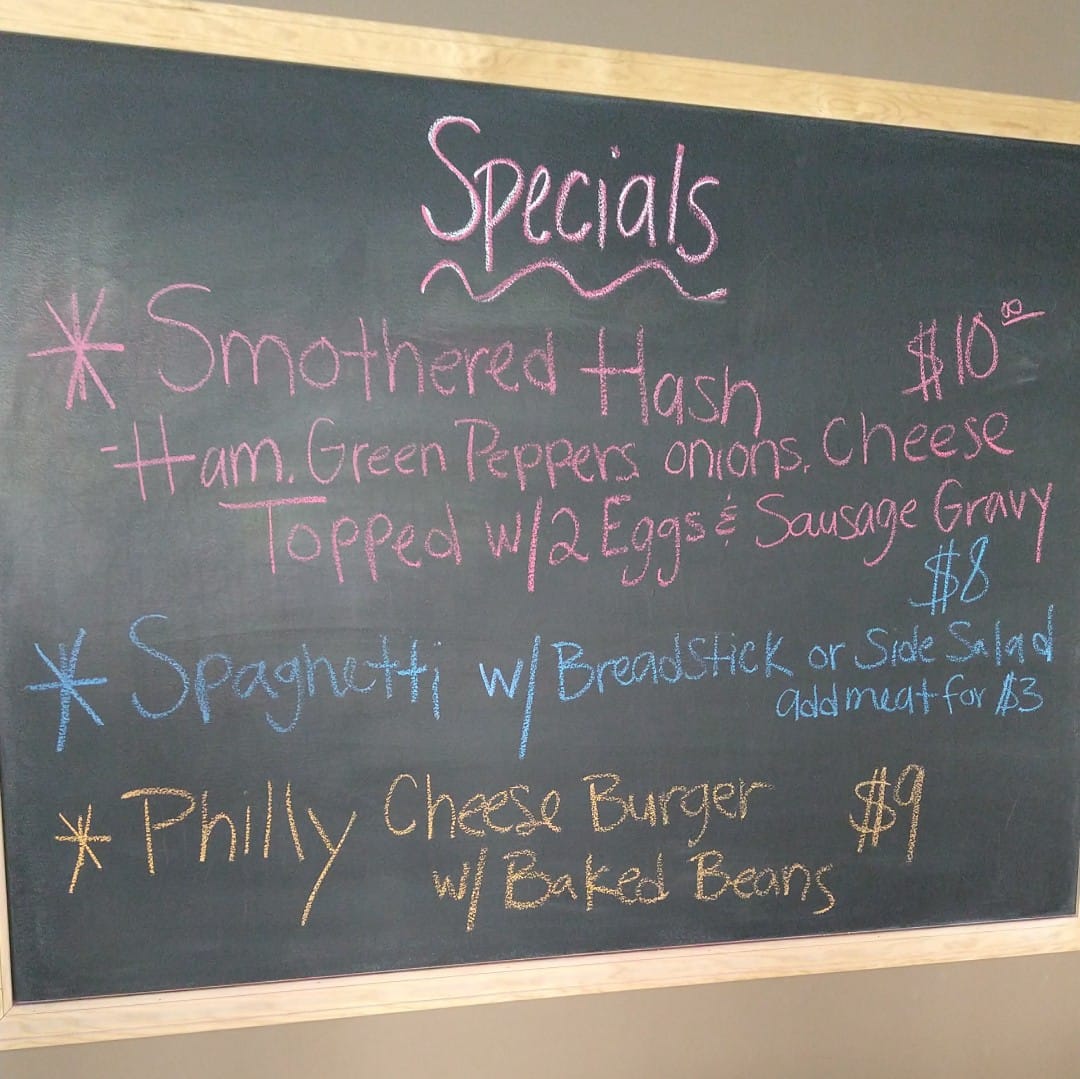 Specials
* Smothered Hash $10.00
-Ham, Green Peppers onions, Cheese
Topped w/2 Eggs & Sausage Gravy
$8
* Spaghetti w/ Breadstick or Side Salad
add meat for $3
* Philly Cheese Burger $9
w/ Baked Beans